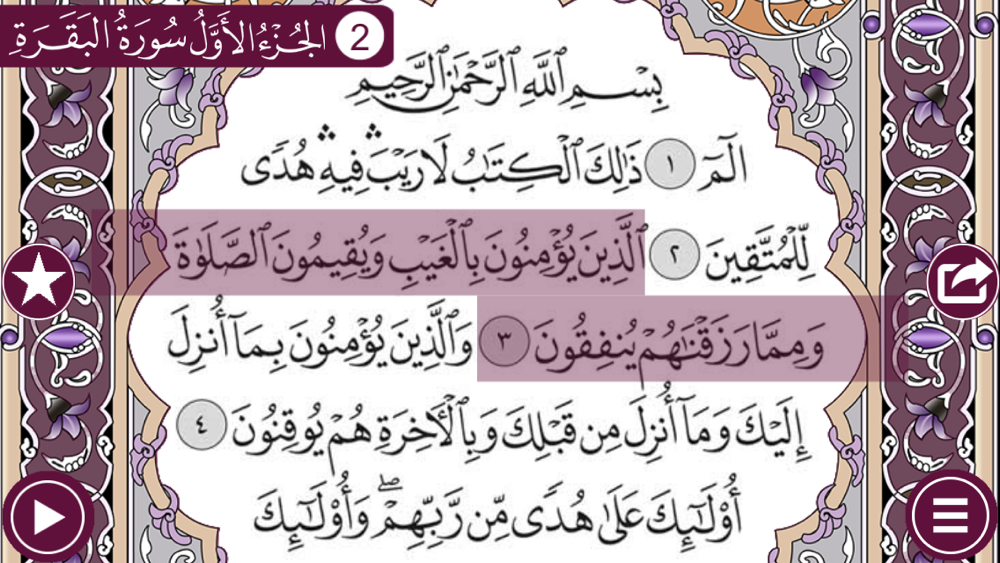 الجُزْءُ الأَوَّلُ سُورَةُ البَقَرَةِ 2
بِسْمِ ٱللَّهِ ٱلرَّحْمَٰنِ ٱلرَّحِيمِ
الٓمٓ ١ ذَٰلِكَ ٱلْكِتَابُ لَا رَيْبَ ۛ فِيهِ ۛ هُدًى
لِّلْمُتَّقِينَ ٢ ٱلَّذِينَ يُؤْمِنُونَ بِٱلْغَيْبِ وَيُقِيمُونَ ٱلصَّلَوٰةَ
وَمِمَّا رَزَقْنَٰهُمْ يُنفِقُونَ ٣ وَٱلَّذِينَ يُؤْمِنُونَ بِمَآ أُنزِلَ
إِلَيْكَ وَمَآ أُنزِلَ مِن قَبْلِكَ وَبِٱلْأَخِرَةِ هُمْ يُوقِنُونَ ٤
أُو۟لَٰٓئِكَ عَلَىٰ هُدًى مِّن رَّبِّهِمْ ۖ وَأُو۟لَٰٓئِكَ